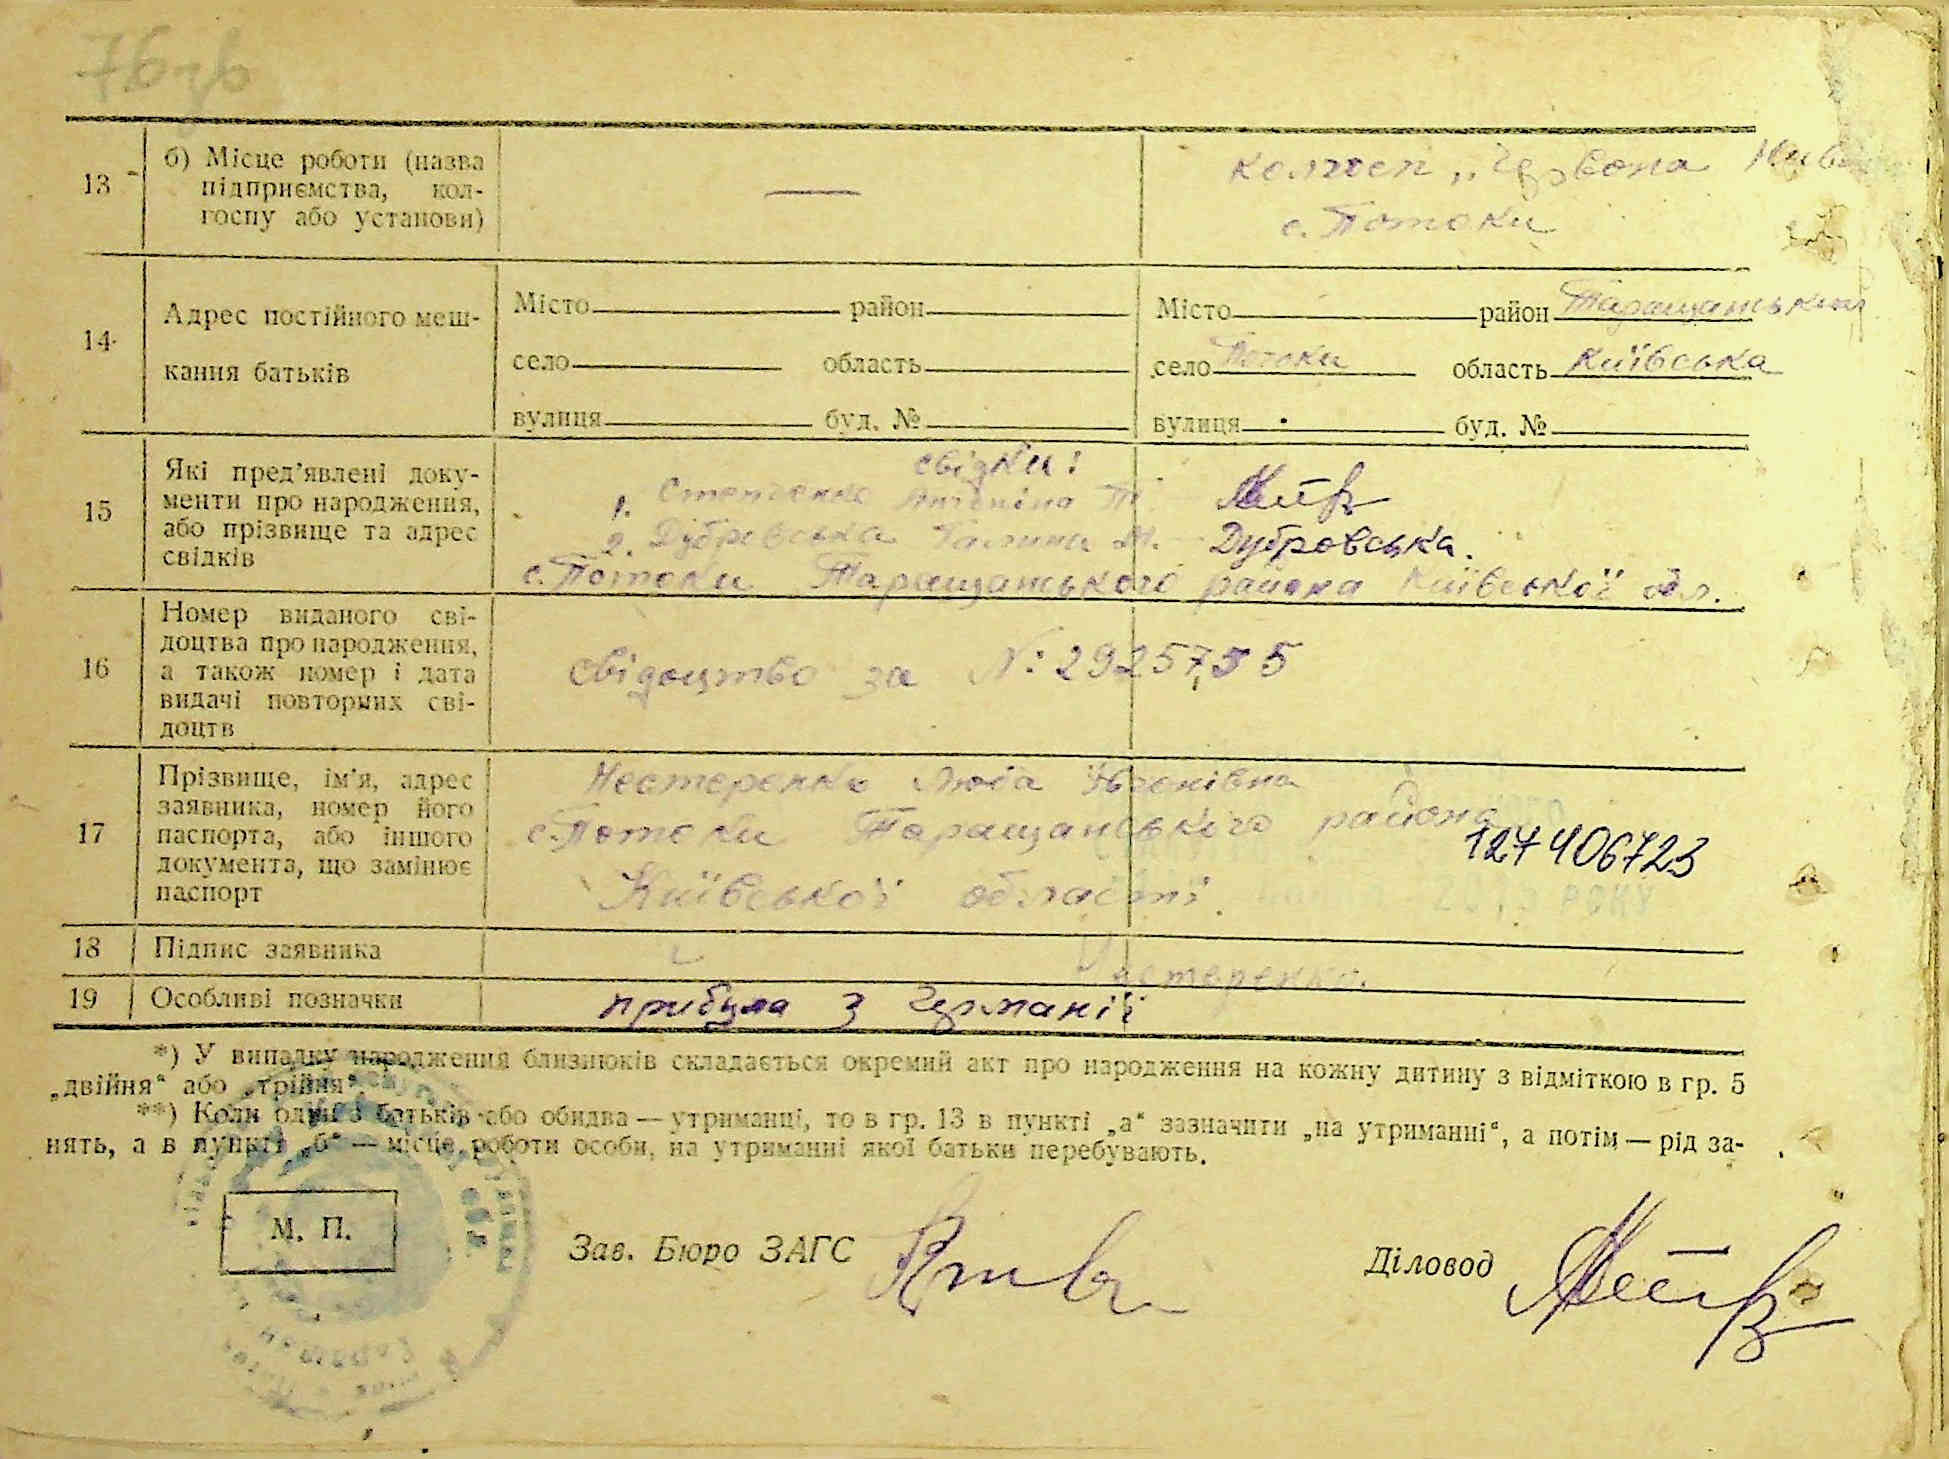 76зв
13
б) Місце роботи (назва
підприємства, кол-
госпу або установи)
—
колгосп „Червона Нива
с. Потоки
14
Адрес постійного меш-
кання батьків
Місто район
село область
вулиця буд. №
Місто район Таращанський
село Потоки область Київська
вулиця буд. №
15
Які пред'явлені доку-
менти про народження,
або прізвище та адрес
свідків
свідки:
1. Степченко Антоніна П.
2. Дубровська Галина М. Дубровська.
с. Потоки Таращанського района Київської обл.
16
Номер виданого сві-
доцтва про народження,
а також номер і дата
видачі повторних сві-
доцтв
Свідоцтво за №: 2925755
17
Прізвище, ім'я, адрес
заявника, номер його
паспорта, або іншого
документа, що замінює
паспорт
Нестеренко Люба Євгенівна
с. Потоки Таращанського района
127406723
Київської області
РОКУ
18
Підпис заявника
Нестеренко.
19
Особливі позначки
прибула з Германії
*) У випадку народження близнюків складається окремий акт про народження на кожну дитину з відміткою в гр. 5
„двійня“ або „трійня“.
**) Коли один з батьків або обидва — утриманці, то в гр. 13 в пункті „а“ зазначити „на утриманні“, а потім — рід за-
нять, а в пункті „б“ — місце роботи особи, на утриманні якої батьки перебувають.
М. П.
Зав. Бюро ЗАГС
Діловод